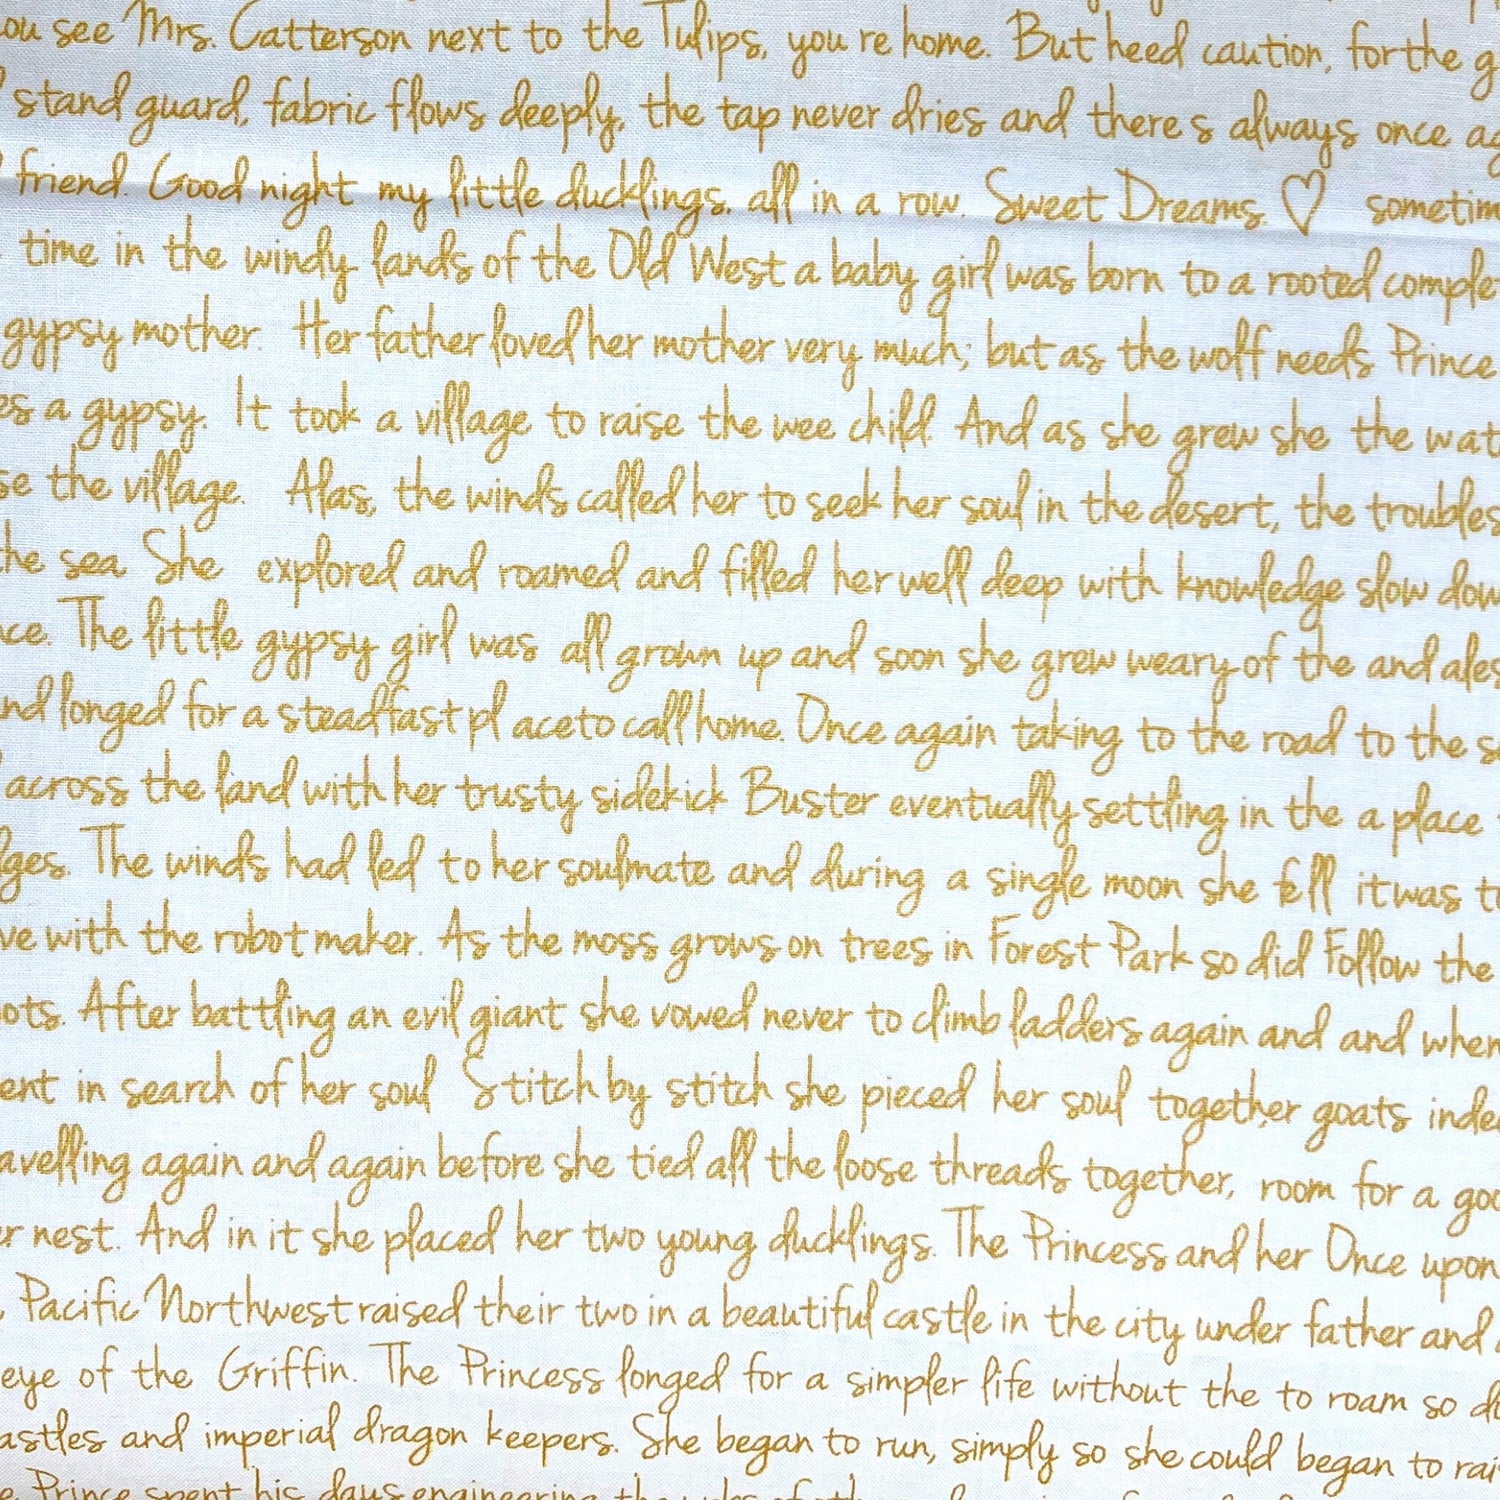 ou see Mrs. Catterson next to the Tulips, you re home. But heed caution, for the g
stand guard, fabric flows deeply, the tap never dries and there s always once ag
friend. Good night my little ducklings, all in a row. Sweet Dreams. ♡ sometim
time in the windy lands of the Old West a baby girl was born to a rooted comple
gypsy mother. Her father loved her mother very much; but as the wolf needs Prince
es a gypsy. It took a village to raise the wee child. And as she grew she the wat
se the village. Alas, the winds called her to seek her soul in the desert, the troubles
he sea. She explored and roamed and filled her well deep with knowledge slow dow
ce. The little gypsy girl was all grown up and soon she grew weary of the and ales
nd longed for a steadfast pl ace to call home. Once again taking to the road to the s
across the land with her trusty sidekick Buster eventually settling in the a place
ges. The winds had led to her soulmate and during a single moon she fell it was t
ve with the robot maker. As the moss grows on trees in Forest Park so did Follow the
ots. After battling an evil giant she vowed never to climb ladders again and and when
ent in search of her soul Stitch by stitch she pieced her soul together goats inde
avelling again and again before she tied all the loose threads together, room for a goo
r nest. And in it she placed her two young ducklings. The Princess and her Once upon
Pacific Northwest raised their two in a beautiful castle in the city under father and
eye of the Griffin. The Princess longed for a simpler life without the to roam so d
astles and imperial dragon keepers. She began to run, simply so she could began to rai
Prince spent his days engineering